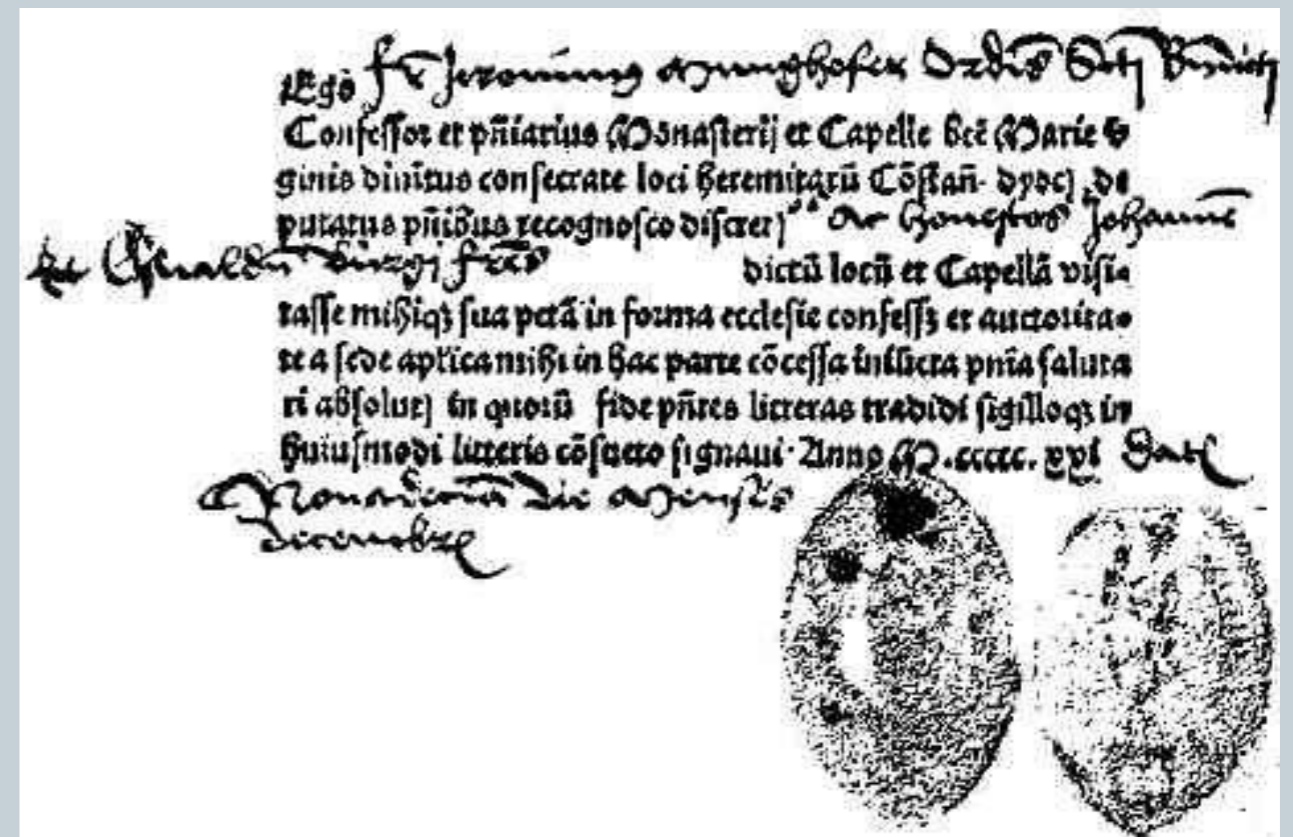 Ego fr Jeronimus Munghofer Ordĩs Scti Bn̄dicti
Confessor et pñiarius Monasterij et Capelle btē Marie v
ginis diuinitus consecrate loci heremitarū Cōstañ. dyoc) .de
putatus pñibus recognosco discret) Ac honestos Johannē
et Oswaldū frēs
dictū locū et Capellā visi-
tasse mihiqȝ sua pctā in forma ecclesie confessȝ et auctorita-
te a sede aplica mihi in hac parte cōcessa iniūcta pnīa saluta
ri absolut) in quorū fidē pñtes litteras tradidi sigilloqȝ in
huiusmodi litteris cōsueto signaui. Anno M.ccccc.xxi Dat
Nonadecima die Mensis
Decembrȝ